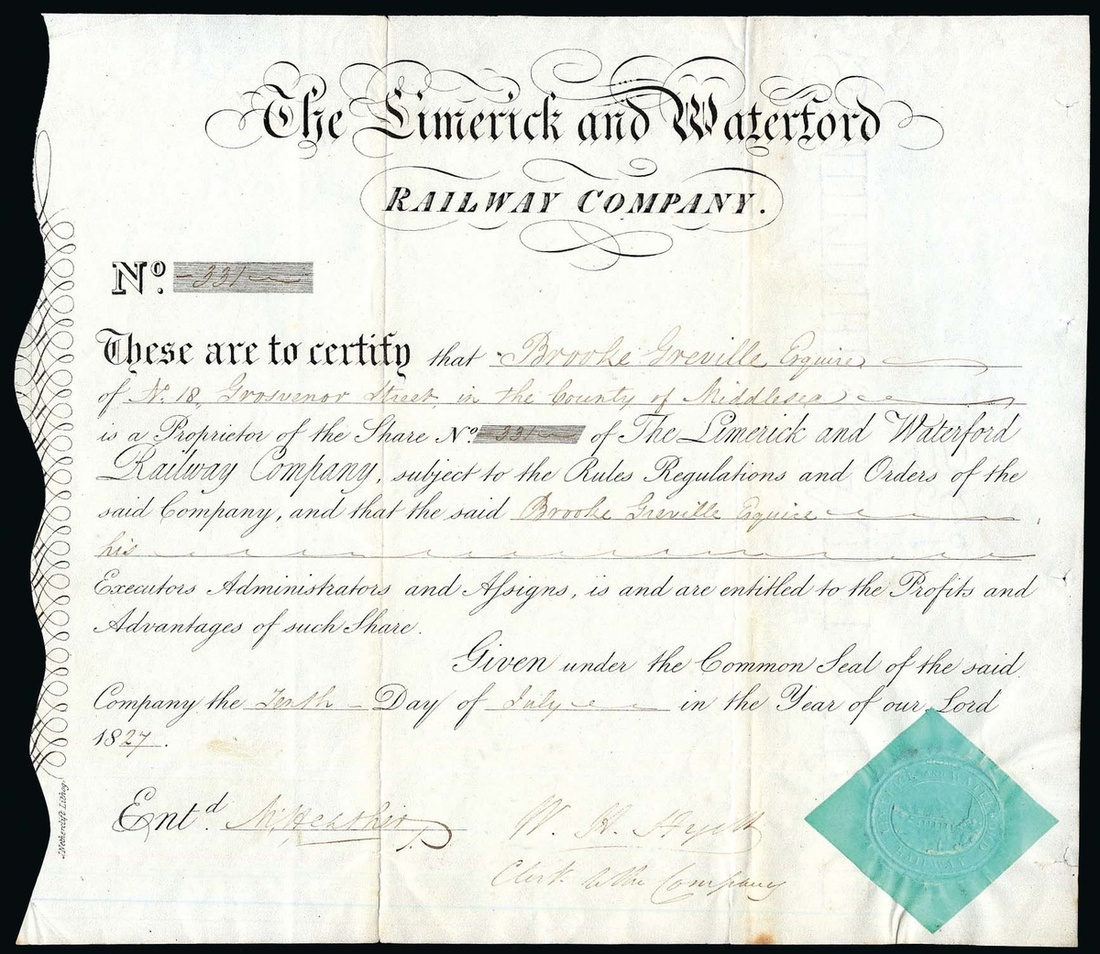 The Limerick and Waterford
RAILWAY COMPANY.
No. 331
These are to certify that Brooke Greville Esquire
of No. 18, Grosvenor Street, in the County of Middlesex
is a Proprietor of the Share No. 331 of The Limerick and Waterford
Railway Company, subject to the Rules Regulations and Orders of the
said Company, and that the said Brooke Greville Esquire
his
Executors Administrators and Assigns, is and are entitled to the Profits and
Advantages of such Share.
Given under the Common Seal of the said
Company the Tenth Day of July in the Year of our Lord
1827.
Entd. W. H. Hyett
Clerk to the Company
J. Netherclift Lithog.